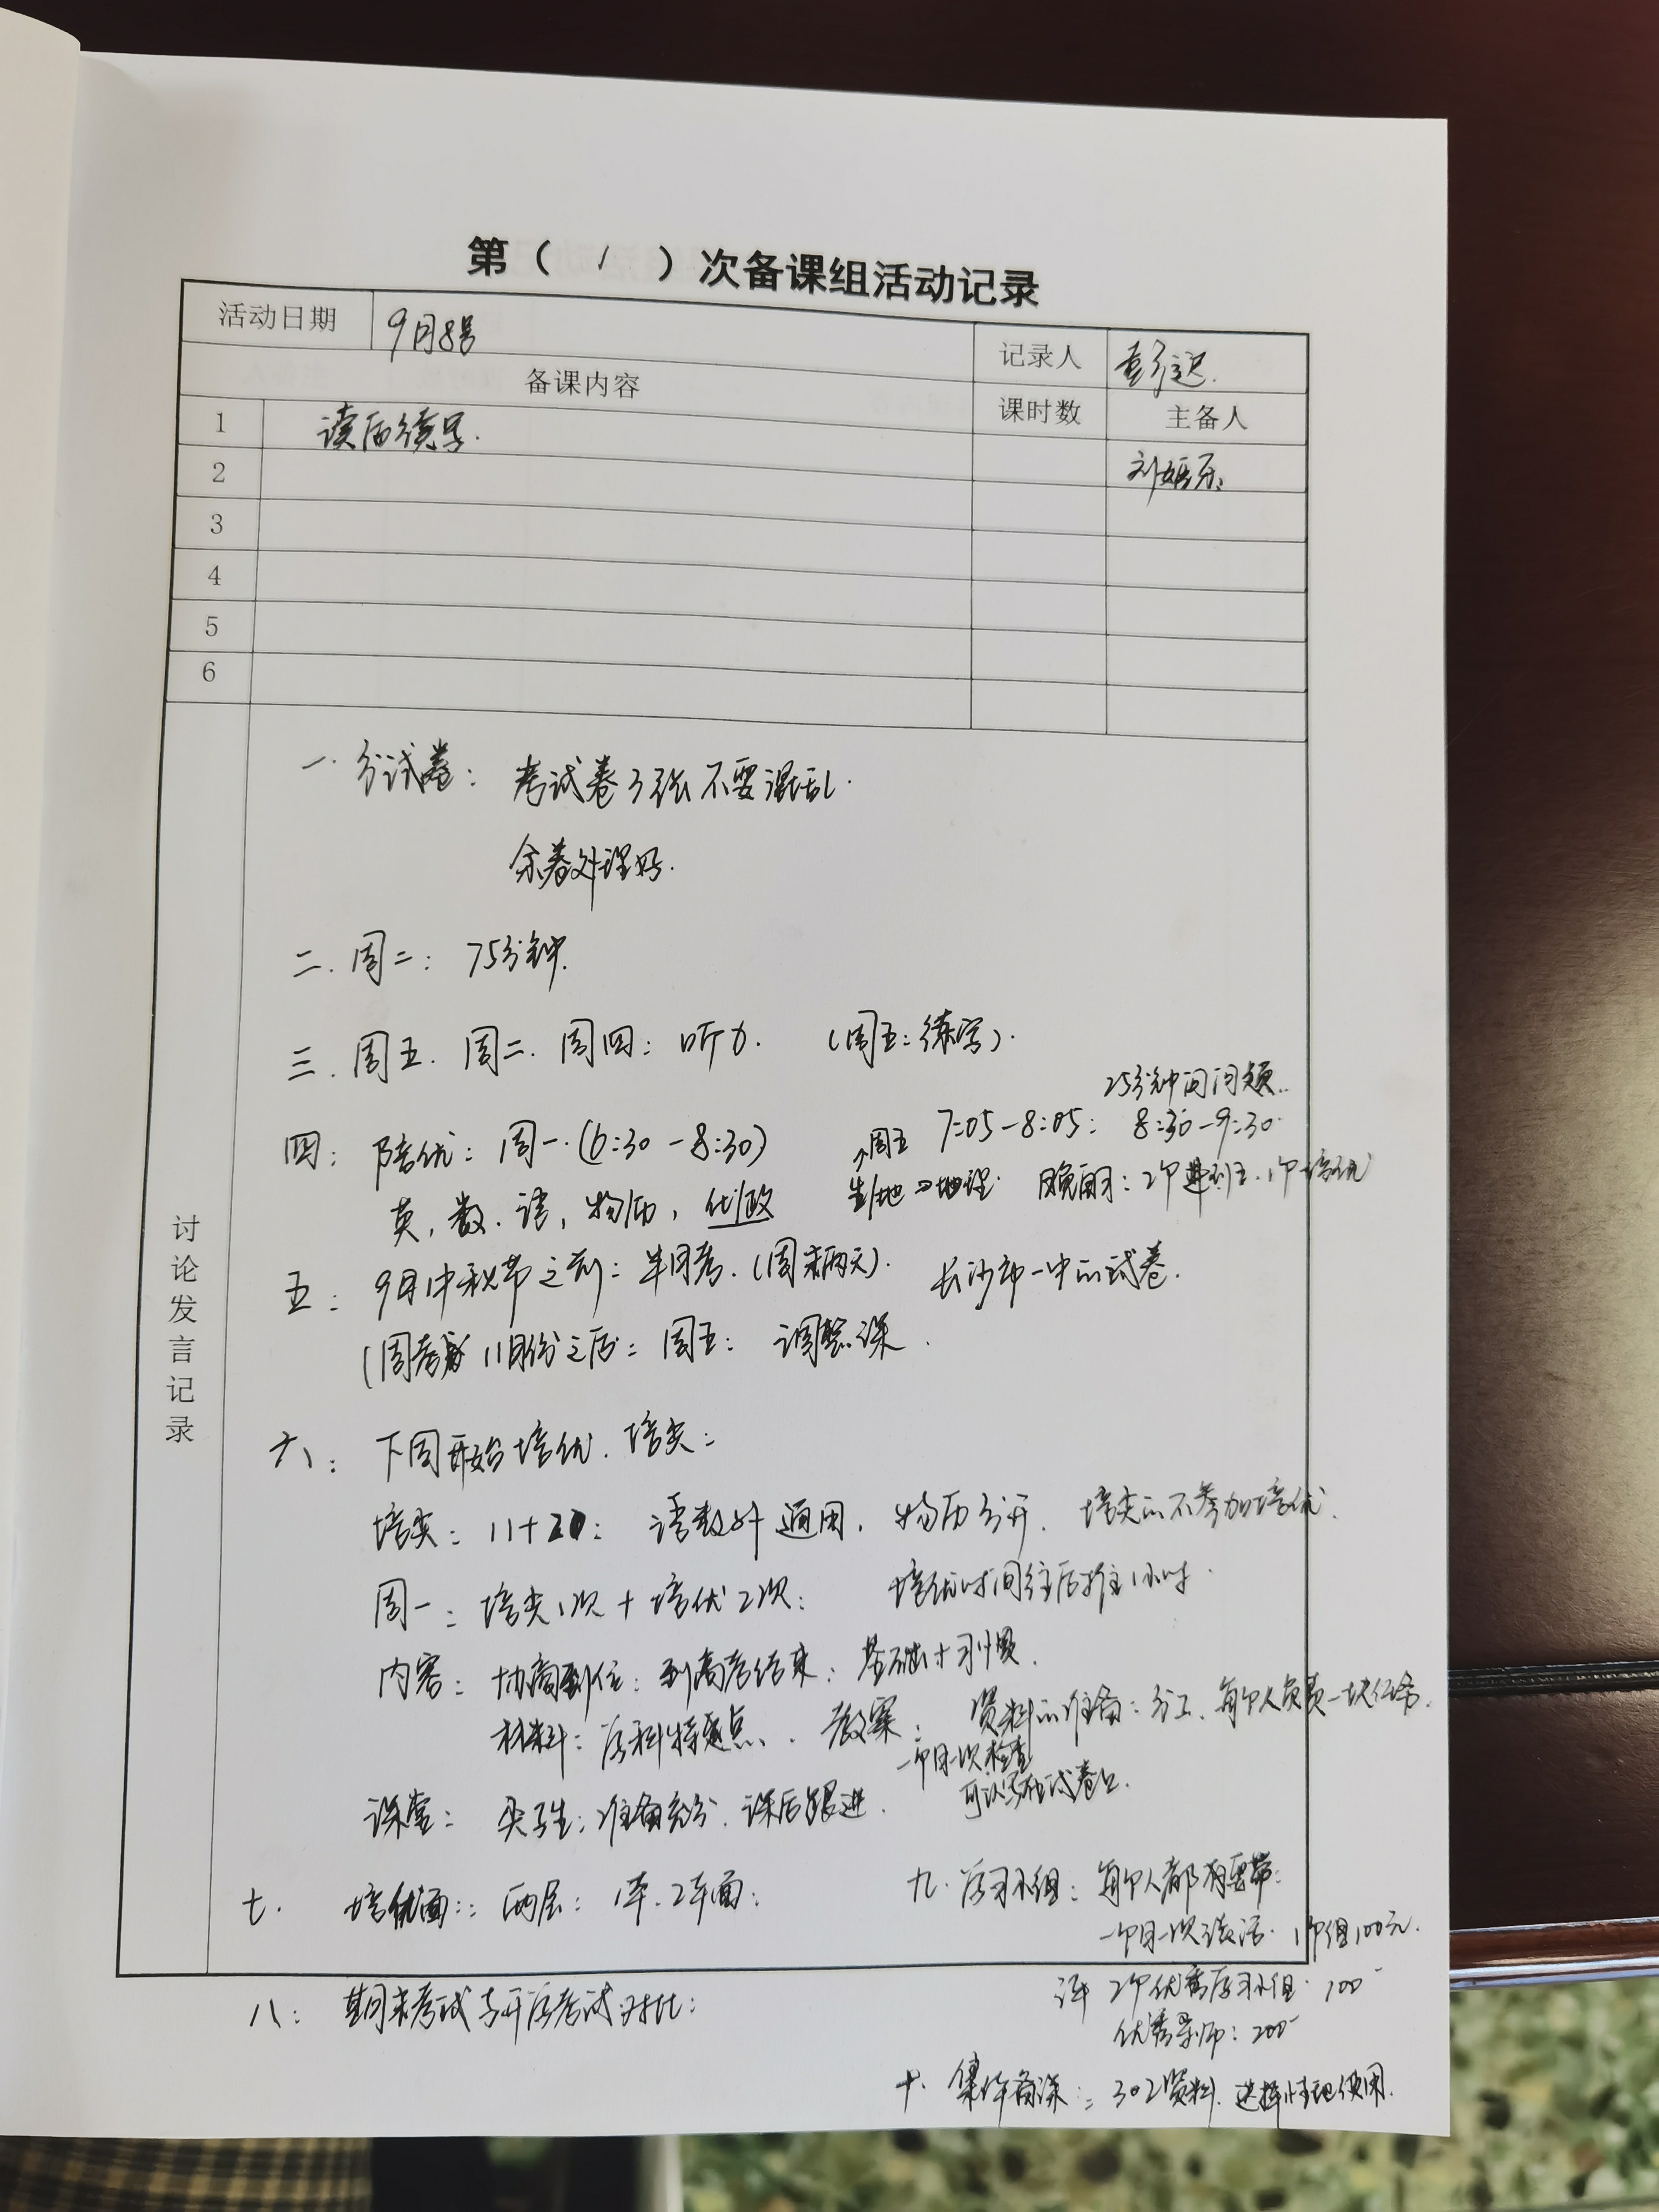 第（ 1 ）次备课组活动记录
活动日期 9月8号 记录人
备课内容 课时数 主备人
1 读后续写.
2 刘
3
4
5
6
讨论发言记录
一. 分试卷： 考试卷3张不要混乱.
余卷处理好.
二. 周二： 75分钟.
三. 周五. 周二. 周四： 听力. （周五：练写）.
25分钟问问题..
四： 陪优： 周一.（6:30-8:30） 周五 7:05-8:05： 8:30-9:30.
英，数.语，物历，化/政 生/地→地理. 晚辅：2个进班. 1个培优
五： 9月中秋节之前：半月考.（周末两天）. 长沙市一中的试卷.
（周考 11月份之后：周五： 调整课.
六： 下周开始培优. 培尖：
培尖： 11+20： 语数外通用. 物历分开. 培尖的不参加培优.
周一：培尖1次+培优2次： 培优时间往后推1小时.
内容：协商到位：到高考结束：基础+习惯.
材料：学科特点、教案： 资料的准备：分工、每个人负责一块任务.
一个月一次检查
可以写在试卷上.
课堂： 尖子生：准备充分. 课后跟进.
七. 培优面：： 两层： 1本. 2本面：
九. 学习小组： 每个人都有要带：
一个月一次谈话. 1个组100元.
八： 期末考试与开学考试对比：
2个优秀学习小组. 100
优秀导师：200
十. 集体备课：：302资料. 选择性地使用.